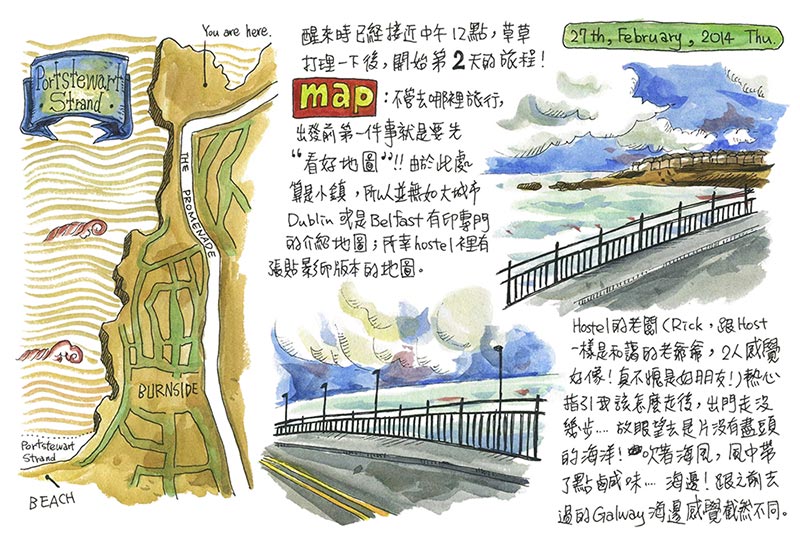 Portstewart
Strand.
You are here.
THE PROMENADE
BURNSIDE
Portstewart
Strand
BEACH
醒來時已經接近中午12點，草草
打理一下後，開始第2天的旅程！
map：不管去哪裡旅行，
出發前第一件事就是要先
“看好地圖”!! 由於此處
算是小鎮，所以並無如大城市
Dublin 或是Belfast 有印專門
的介紹地圖；所幸hostel裡有
張貼影印版本的地圖。
27th, February, 2014 Thu.
Hostel的老闆（Rick，跟Host
一樣是和藹的老爺爺，2人感覺
好像！真不愧是好朋友！）熱心
指引我該怎麼走後，出門走沒
幾步.... 放眼望去是片沒有盡頭
的海洋！吹著海風，風中帶
了點鹹味.... 海邊！跟之前去
過的Galway海邊感覺截然不同。